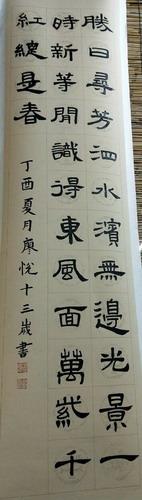 勝日尋芳泗水濱無邊光景一
時新等閒識得東風面萬紫千
紅總是春
丁酉夏月廖悦十三歲書